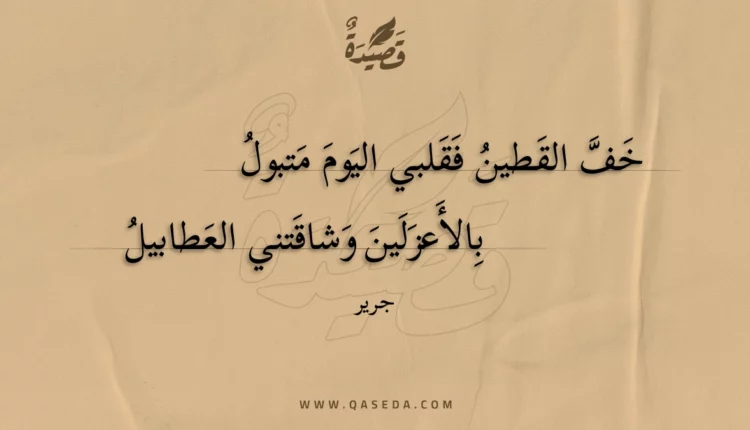 قَصِيْدَةٌ
خَفَّ القَطينُ فَقَلبي اليَومَ مَتبولُ
بِالأَعزَلَينَ وَشاقَتني العَطابيلُ
جرير
WWW.QASEDA.COM